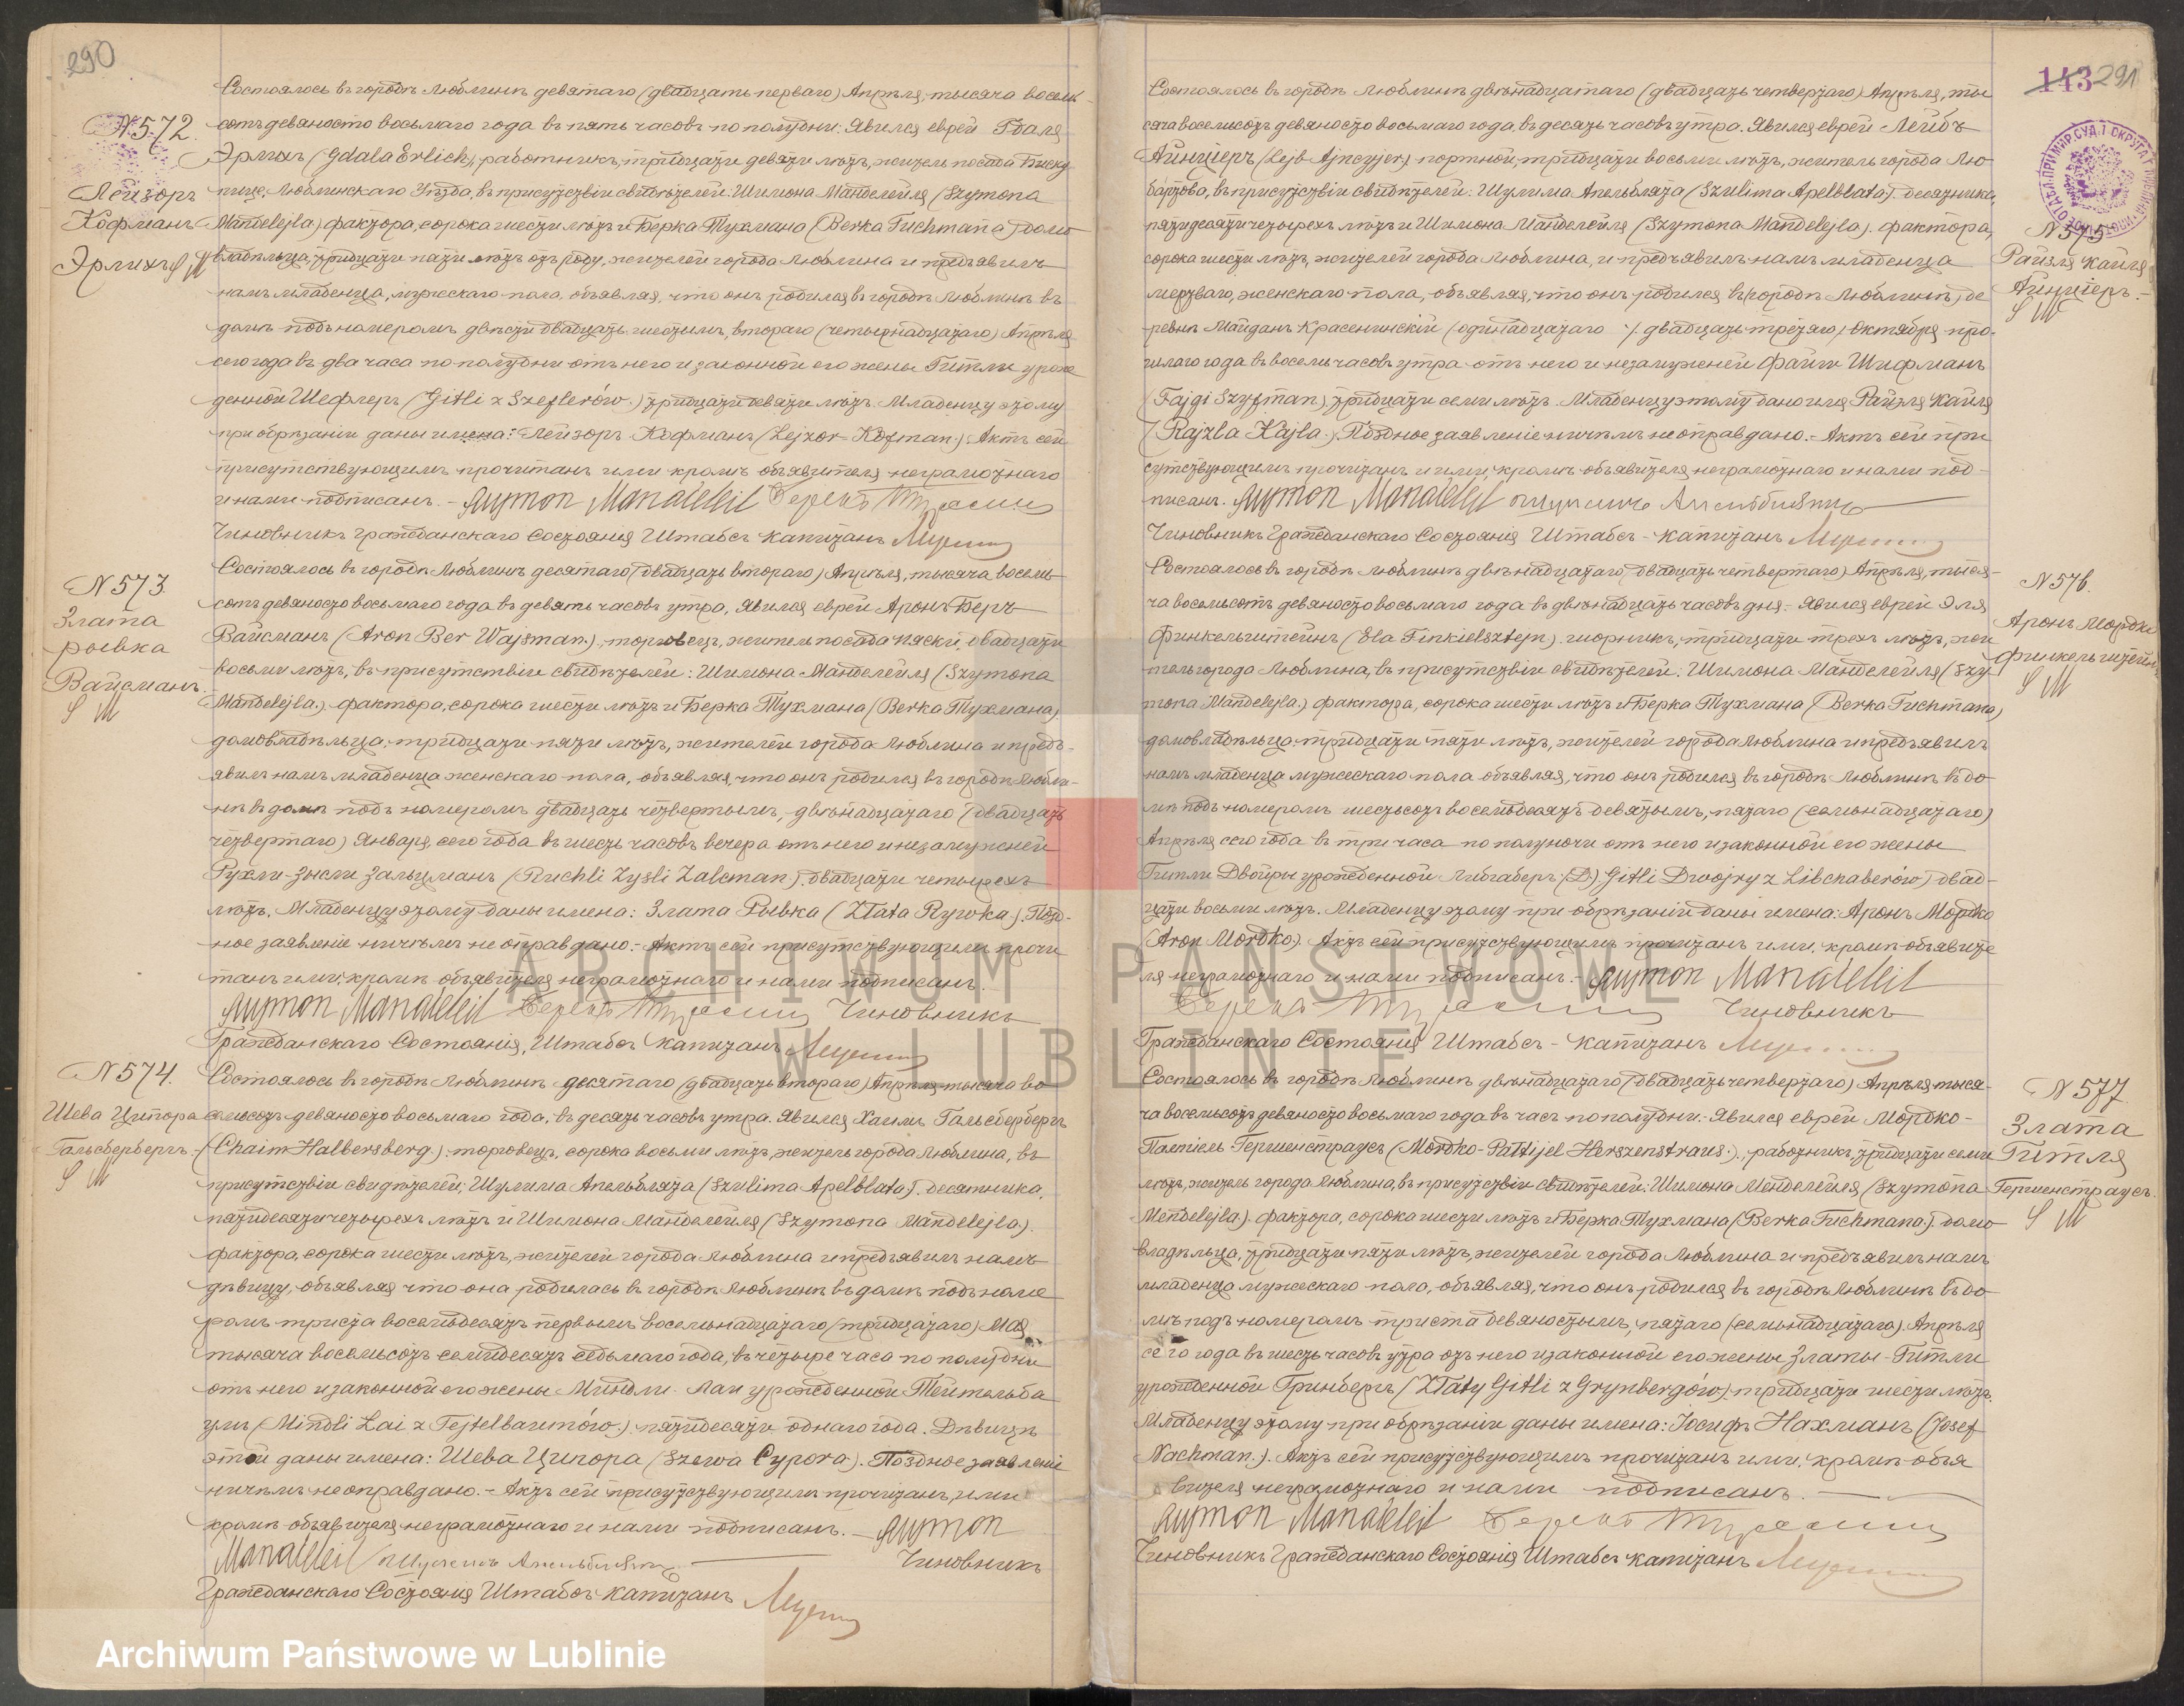 290
Состоялось въ городѣ Люблинѣ девятаго (двадцать перваго) Апрѣля, тысяча восемь-
№ 572.
сотъ девяносто восьмаго года въ пять часовъ по полудни. Явился еврей Гдаля
Эрлихъ (Gdala Erlich), работникъ, тридцати девяти лѣтъ, житель посада Биску
Лейзоръ
пице, Люблинскаго Уѣзда, въ присутствіи свидѣтелей: Шимона Манделейля (Szymona
Кофманъ
Mandelejla) фактора, сорока шести лѣтъ и Берка Тухмана (Berka Tuchmana) домо
Эрлихъ
владѣльца, тридцати пяти лѣтъ отъ роду, жителей города Люблина и предъявилъ
намъ младенца, мужескаго пола, объявляя, что онъ родился въ городѣ Люблинѣ въ
домѣ подъ номеромъ двѣсти двадцать шестымъ, втораго (четырнадцатаго) Апрѣля
сего года въ два часа по полудни отъ него и законной его жены Гитли урож
денной Шефлеръ (Gitli z Szeflerów.) тридцати девяти лѣтъ. Младенцу этому
при обрѣзаніи даны имена: Лейзоръ-Кофманъ (Lejzor-Kofman.). Актъ сей
присутствующимъ прочитанъ ими кромѣ объявителя неграмотнаго
и нами подписанъ. - Szymon Mandeleil
Чиновникъ Гражданскаго Состоянія Штабсъ Капитанъ
№ 573.
Состоялось въ городѣ Люблинѣ десятаго (двадцать втораго) Апрѣля, тысяча восемь-
Злата
сотъ девяносто восьмаго года въ девять часовъ утра, явился еврей Аронъ Беръ
рывка
Вайсманъ (Aron Ber Wajsman.), торговецъ, житель посада Пяски, двадцати
Вайсманъ.
восьми лѣтъ, въ присутствіи свидѣтелей: Шимона Манделейля (Szymona
Mandelejla.) фактора, сорока шести лѣтъ и Берка Тухмана (Berka Тухмана)
домовладѣльца, тридцати пяти лѣтъ, жителей города Люблина и предъ-
явилъ намъ младенца женскаго пола, объявляя, что онъ родился въ городѣ Любли-
нѣ въ домѣ подъ номеромъ двадцать четвертымъ, двѣнадцатаго (двадцать
четвертаго) Января, сего года въ шесть часовъ вечера отъ него и незамужней
Рухли-Зысли Зальцманъ (Ruchli Zysli Zalcman.), двадцати четырехъ
лѣтъ. Младенцу этому даны имена: Злата Рывка (Złata Rywka.). Позд-
ное заявленіе ничѣмъ не оправдано. - Актъ сей присутствующимъ прочи
танъ ими, кромѣ объявителя неграмотнаго и нами подписанъ.
Szymon Mandeleil Чиновникъ
Гражданскаго Состоянія, Штабсъ Капитанъ
№ 574.
Состоялось въ городѣ Люблинѣ десятаго (двадцать втораго) Апрѣля тысяча во
Шева Ципора
семьсотъ девяносто восьмаго года, въ десять часовъ утра. Явился Хаимъ Гальсбербергъ
Гальсбербергъ.
(Chaim Halbersberg.) торговецъ, сорока восьми лѣтъ, житель города Люблина, въ
присутствіи свидѣтелей: Шулима Апельблята (Szulima Apelblata). десятника,
пятидесяти четырехъ лѣтъ и Шимона Манделейля (Szymona Mandelejla).
фактора, сорока шести лѣтъ, жителей города Люблина и предъявилъ намъ
дѣвицу, объявляя что она родилась въ городѣ Люблинѣ въ домѣ подъ номе
ромъ триста восемьдесятъ первымъ восемнадцатаго (тридцатаго) Мая
тысяча восемьсотъ семидесятъ седьмаго года, въ четыре часа по полудни
отъ него и законной его жены Миндли Лаи урожденной Тейтельба
умъ (Mindli Łai z Tejtelbaumów.). пятидесяти однаго года. Дѣвицѣ
этой даны имена: Шева Ципора (Szewa Cypora). Поздное заявленіе
ничѣмъ не оправдано. - Актъ сей присутствующимъ прочитанъ, ими
кромѣ объявителя неграмотнаго и нами подписанъ. - Szymon
Mandeleil Чиновникъ
Гражданскаго Состоянія Штабсъ Капитанъ
143 291
Состоялось въ городѣ Люблинѣ двѣнадцатаго (двадцать четвертаго) Апрѣля, ты
сяча восемьсотъ девяносто восьмаго года, въ десять часовъ утра. Явился еврей Лейбъ
Айнциеръ (Lejb Ajncyjer.) портной, тридцати восьми лѣтъ, житель города Лю
бартова, въ присутствіи свидѣтелей: Шулима Апельблята (Szulima Apelblata). десятника,
пятидесяти четырехъ лѣтъ и Шимона Манделейля (Szymona Mandelejla). фактора,
№ 575
сорока шести лѣтъ, жителей города Люблина, и предъявилъ намъ младенца
Райзля Кайля
мертваго, женскаго пола, объявляя, что онъ родился въ (городѣ Люблинѣ) де
Айнциеръ. -
ревнѣ Майданъ Красенинскій (одиннадцатаго) двадцать третяго) Октября про-
шлаго года въ восемь часовъ утра отъ него и незамужней Файги Шифманъ
(Fajgi Szyfman) тридцати семи лѣтъ. Младенцу этому дано имя Райзля Кайля
(Rajzla Kajla.). Поздное заявленіе ничѣмъ не оправдано. - Актъ сей при
сутствующимъ прочитанъ и ими, кромѣ объявителя неграмотнаго и нами под-
писанъ. Szymon Mandeleil
Чиновникъ Гражданскаго Состоянія Штабсъ-Капитанъ
Состоялось въ городѣ Люблинѣ двѣнадцатаго (двадцать четвертаго) Апрѣля, тыся-
№ 576.
ча восемьсотъ девяносто восьмаго года въ двѣнадцать часовъ дня. Явился еврей Эля
Аронъ Мордко
Финкельштейнъ (Ela Finkielsztejn). шорникъ, тридцати трехъ лѣтъ, жи
Финкельштейнъ
тель города Люблина, въ присутствіи свидѣтелей: Шимона Манделейля (Szy
mona Mandelejla.) фактора, сорока шести лѣтъ и Берка Тухмана (Berka Tuchmana)
домовладѣльца, тридцати пяти лѣтъ, жителей города Люблина и предъявилъ
намъ младенца мужескаго пола объявляя, что онъ родился въ городѣ Люблинѣ въ до
мѣ подъ номеромъ шестьсотъ восемьдесятъ девятымъ, пятаго (семьнадцатаго)
Апрѣля сего года въ три часа по полуночи отъ него и законной его жены
Гитли Двойры урожденной Либгаберъ (D.) Gitli Dwojry z Libchaberów) двад-
цати восьми лѣтъ. Младенцу этому при обрѣзаніи даны имена: Аронъ Мордко
(Aron Mordko). Актъ сей присутствующимъ прочитанъ ими, кромѣ объявите
ля неграмотнаго и нами подписанъ. - Szymon Mandeleil
Чиновникъ
Гражданскаго Состоянія Штабсъ-Капитанъ
Состоялось въ городѣ Люблинѣ двѣнадцатаго (двадцать четвертаго) Апрѣля тыся-
№ 577.
ча восемьсотъ девяносто восьмаго года въ часъ по полудни. Явился еврей Мордко-
Злата
Палтіель Гершенстраусъ (Mordko-Paltijel Herszenstraus.). работникъ, тридцати семи
Гитля
лѣтъ, житель города Люблина, въ присутствіи свидѣтелей: Шимона Менделейля (Szymona
Гершенстраусъ.
Mendelejla). фактора, сорока шести лѣтъ и Берка Тухмана (Berka Tuchmana.). домо
владѣльца, тридцати пяти лѣтъ, жителей города Люблина и предъявилъ намъ
младенца мужескаго пола, объявляя, что онъ родился въ городѣ Люблинѣ въ до
мѣ подъ номеромъ триста девяностымъ, пятаго (семьнадцатаго). Апрѣля
сего года въ шесть часовъ утра отъ него и законной его жены Златы-Гитли
урожденной Гринбергъ (Złaty Gitli z Grynbergów). тридцати шести лѣтъ.
Младенцу этому при обрѣзаніи даны имена: Іосифъ Нахманъ (Josef
Nachman.). Актъ сей присутствующимъ прочитанъ ими, кромѣ объя
вителя неграмотнаго и нами подписанъ.
Szymon Mandeleil
Чиновникъ Гражданскаго Состоянія Штабсъ Капитанъ
ARCHIWUM PAŃSTWOWE
W LUBLINIE
Archiwum Państwowe w Lublinie